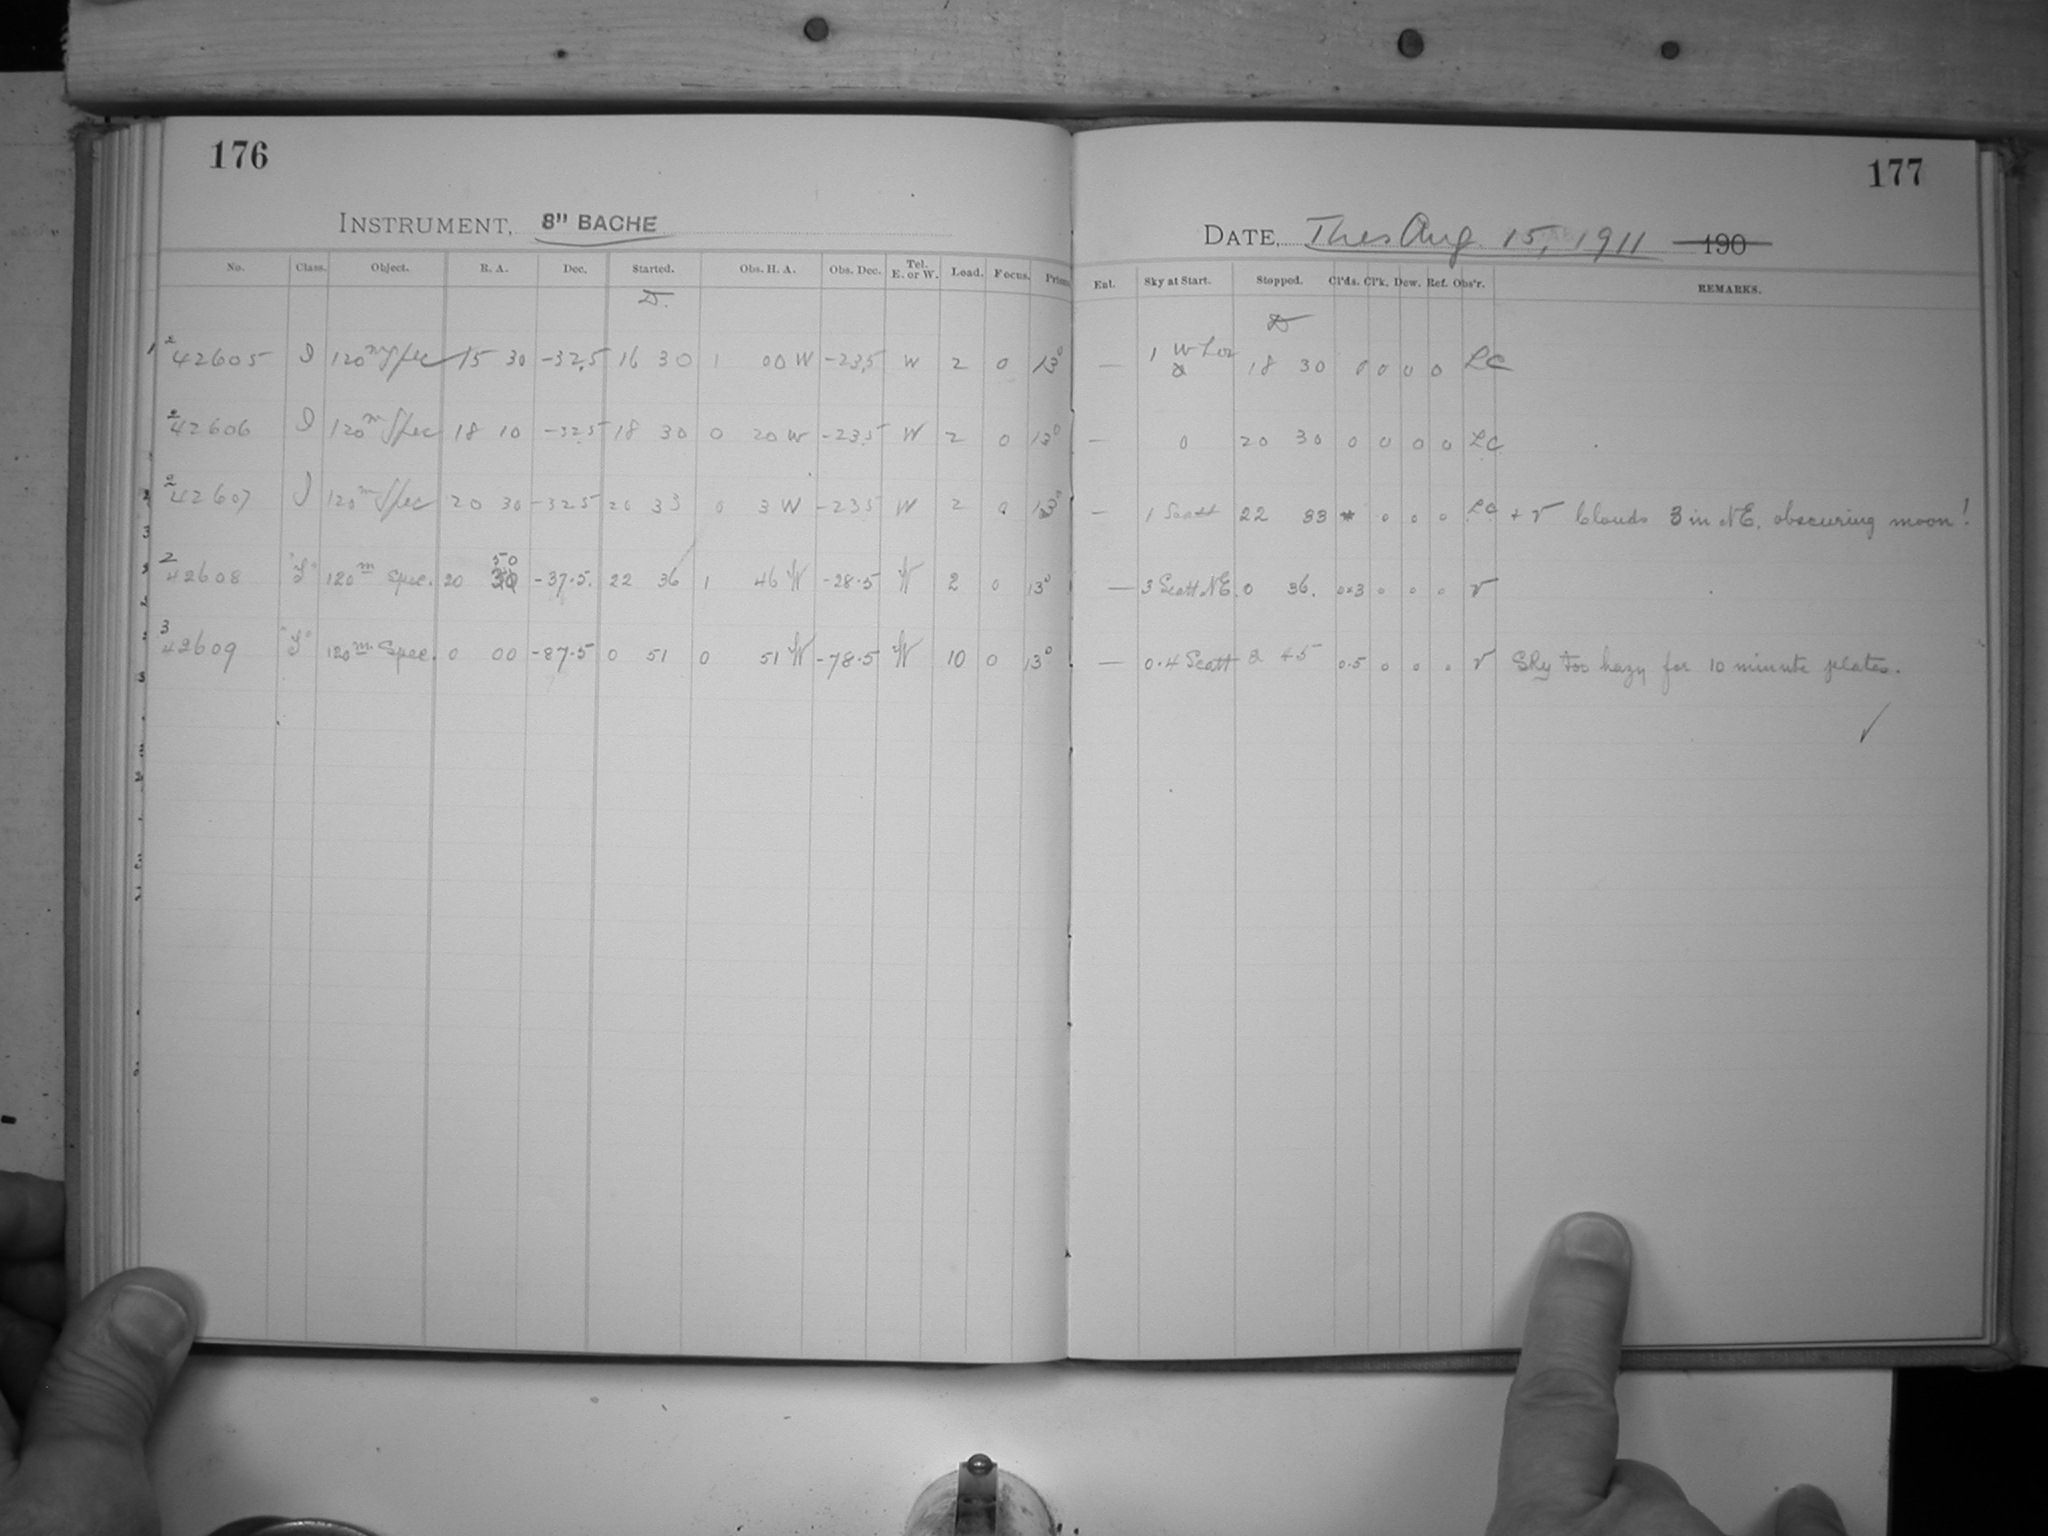 176
INSTRUMENT, 8" BACHE
No. Class. Object. R. A. Dec. Started. Obs. H. A. Obs. Dec. Tel. E. or W. Load. Focus. Prism.
D.
1 2 42605 I 120m Spec 15 30 -32.5 16 30 1 00 W -23.5 W 2 0 13°
2 42606 I 120m Spec 18 10 -32.5 18 30 0 20 W -23.5 W 2 0 13°
2 42607 I 120m Spec 20 30 -32.5 20 33 0 3 W -23.5 W 2 0 13°
50
2 42608 "I" 120m Spec. 20 30 -37.5. 22 36 1 46 W -28.5 W 2 0 13°
3 42609 "I" 120m. Spec. 0 00 -87.5 0 51 0 51 W -78.5 W 10 0 13°
177
DATE, Aug. 15, 1911 190
Enl. Sky at Start. Stopped. Cl'ds. Cl'k. Dew. Ref. Obs'r. REMARKS.
D
— 1 W 18 30 0 0 0 0 LC
— 0 20 30 0 0 0 0 LC
— 1 Scatt 22 33 * 0 0 0 LC + V Clouds 3 in NE. obscuring moon!
— 3 Scatt NE. 0 36. 0×3 0 0 0 V
— 0.4 Scatt 2 45 0.5 0 0 0 V Sky too hazy for 10 minute plates.
✓